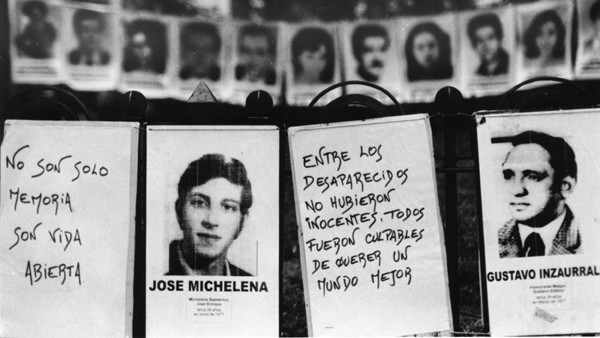 NO SON SOLO
MEMORIA
SON VIDA
ABIERTA
JOSE MICHELENA
Michelena Bastarrica
José Enrique
tenía 26 años
en Junio de 1977
ENTRE LOS
DESAPARECIDOS
NO HUBIERON
INOCENTES. TODOS
FUERON CULPABLES
DE QUERER UN
MUNDO MEJOR
GUSTAVO INZAURRAL
Gustavo Edison
en Marzo de 1977